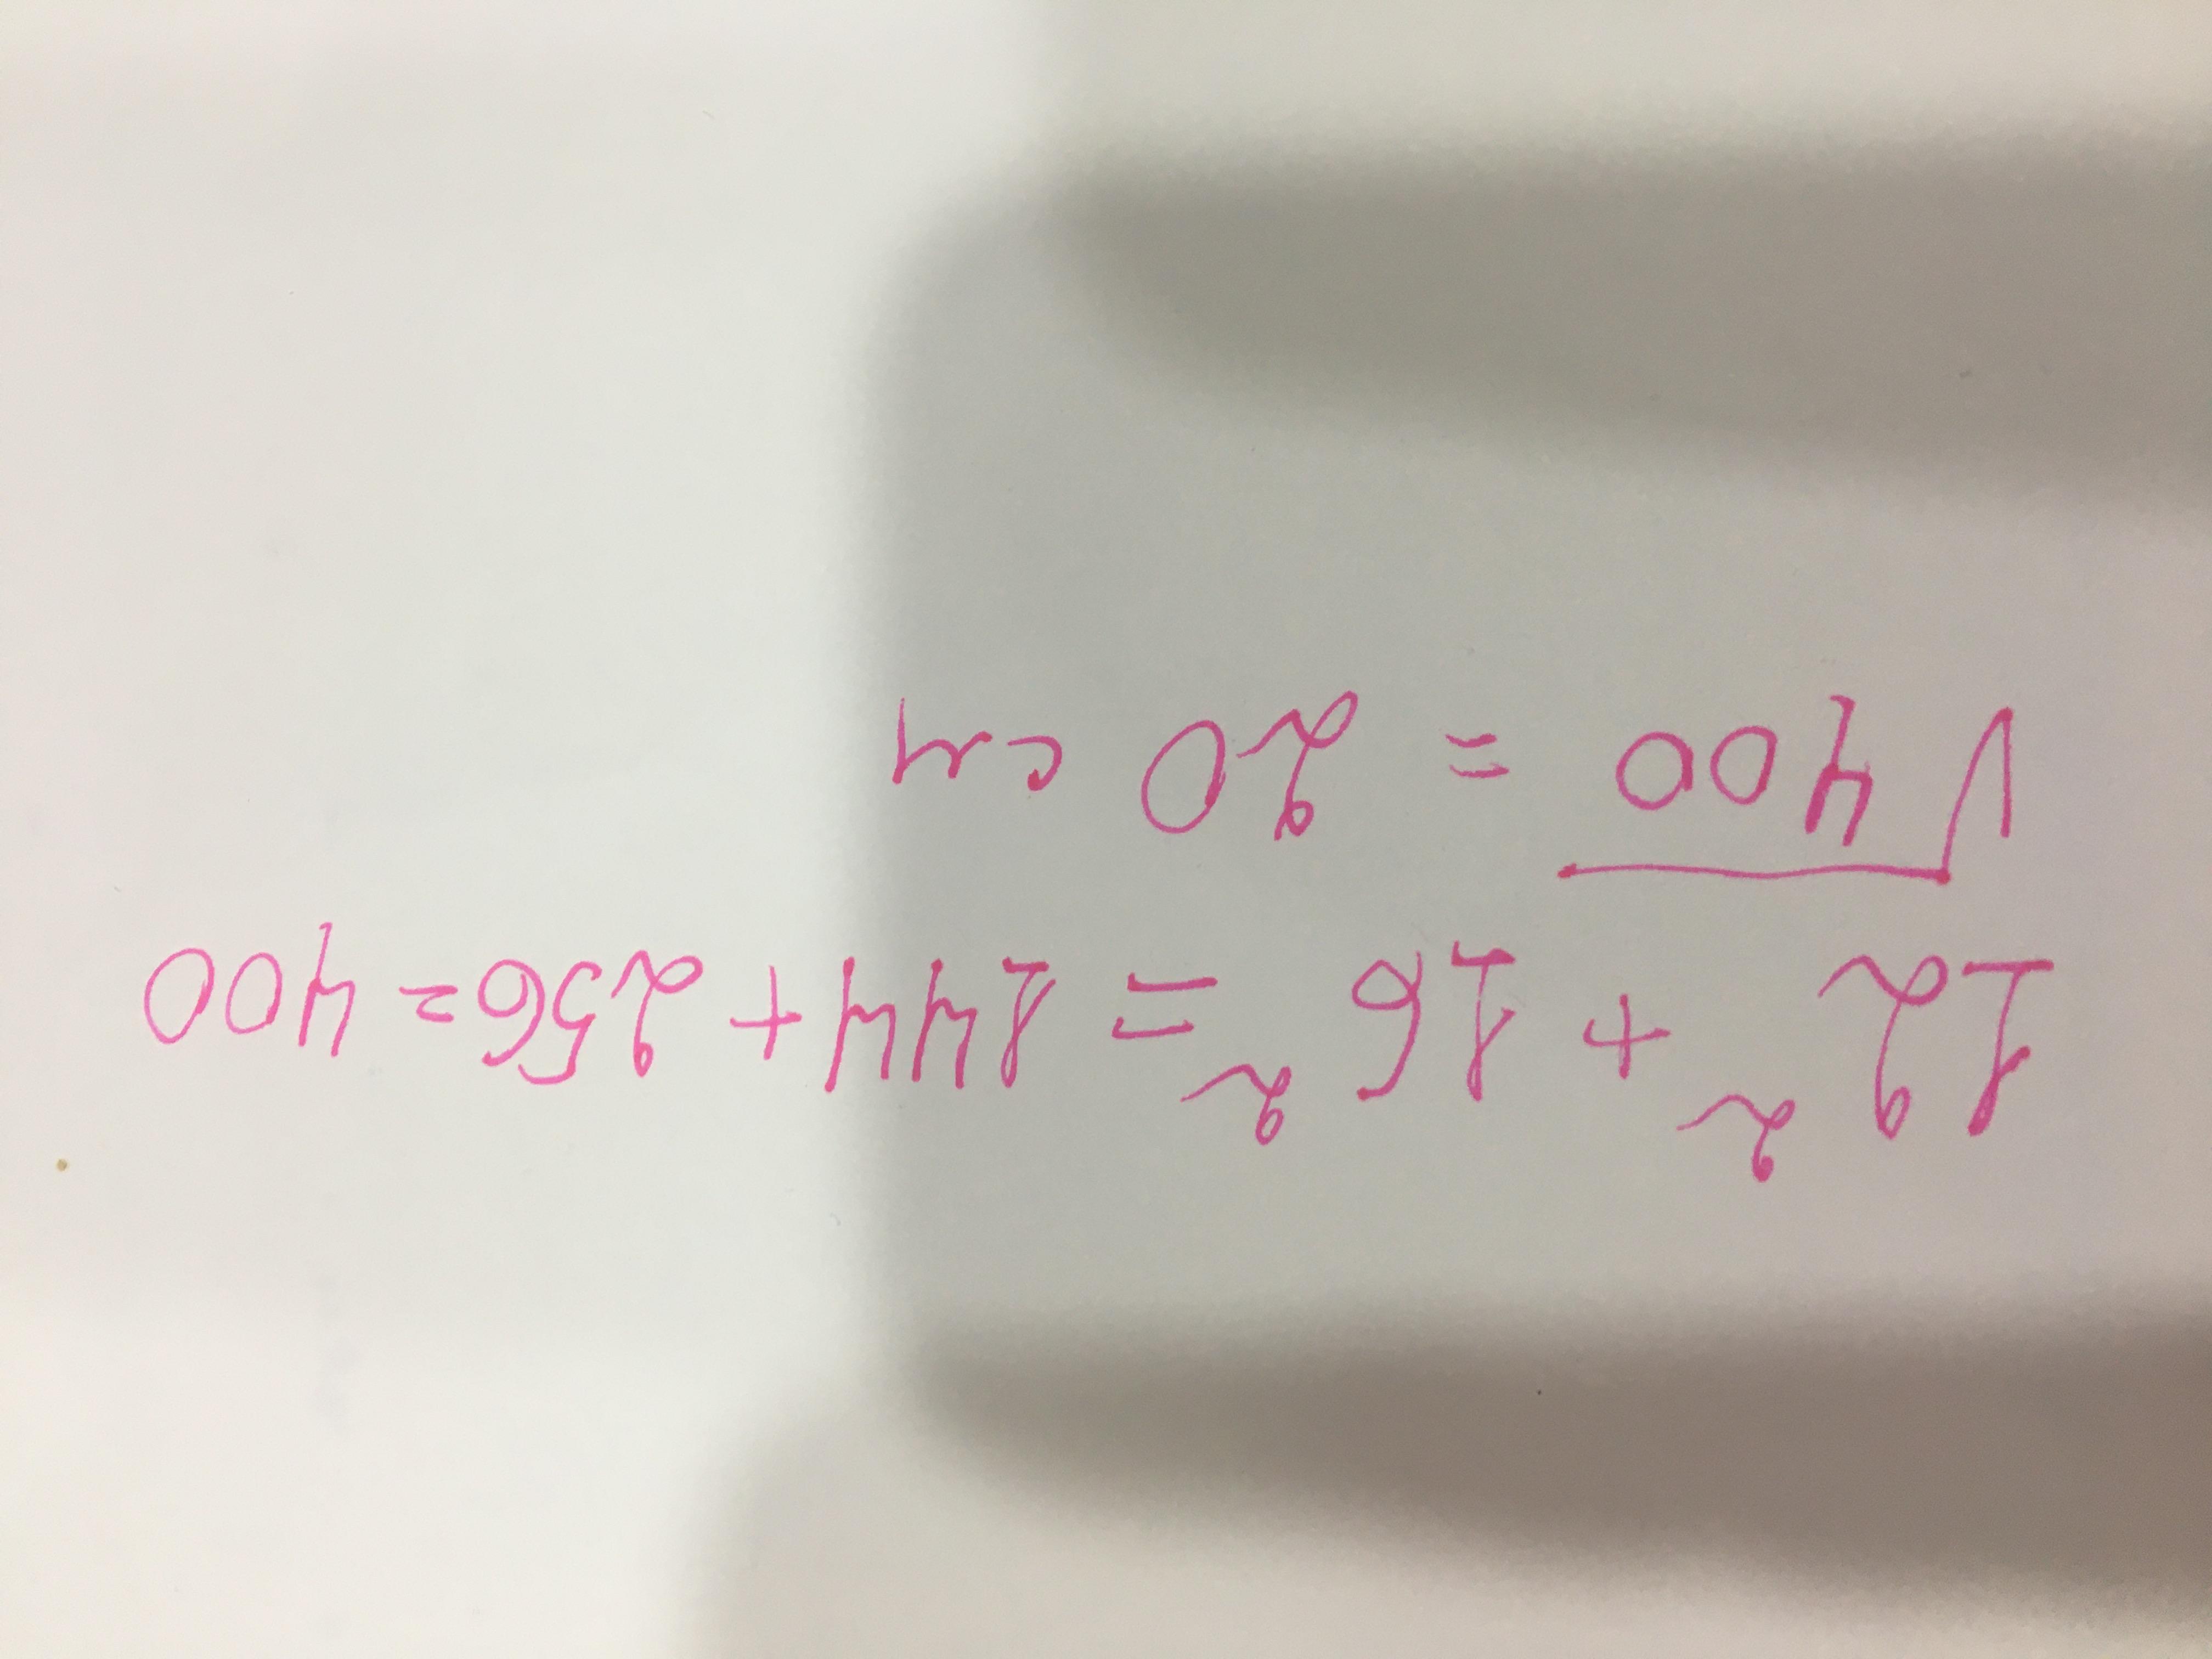 12² + 16² = 144 + 256 = 400
√400 = 20 cm